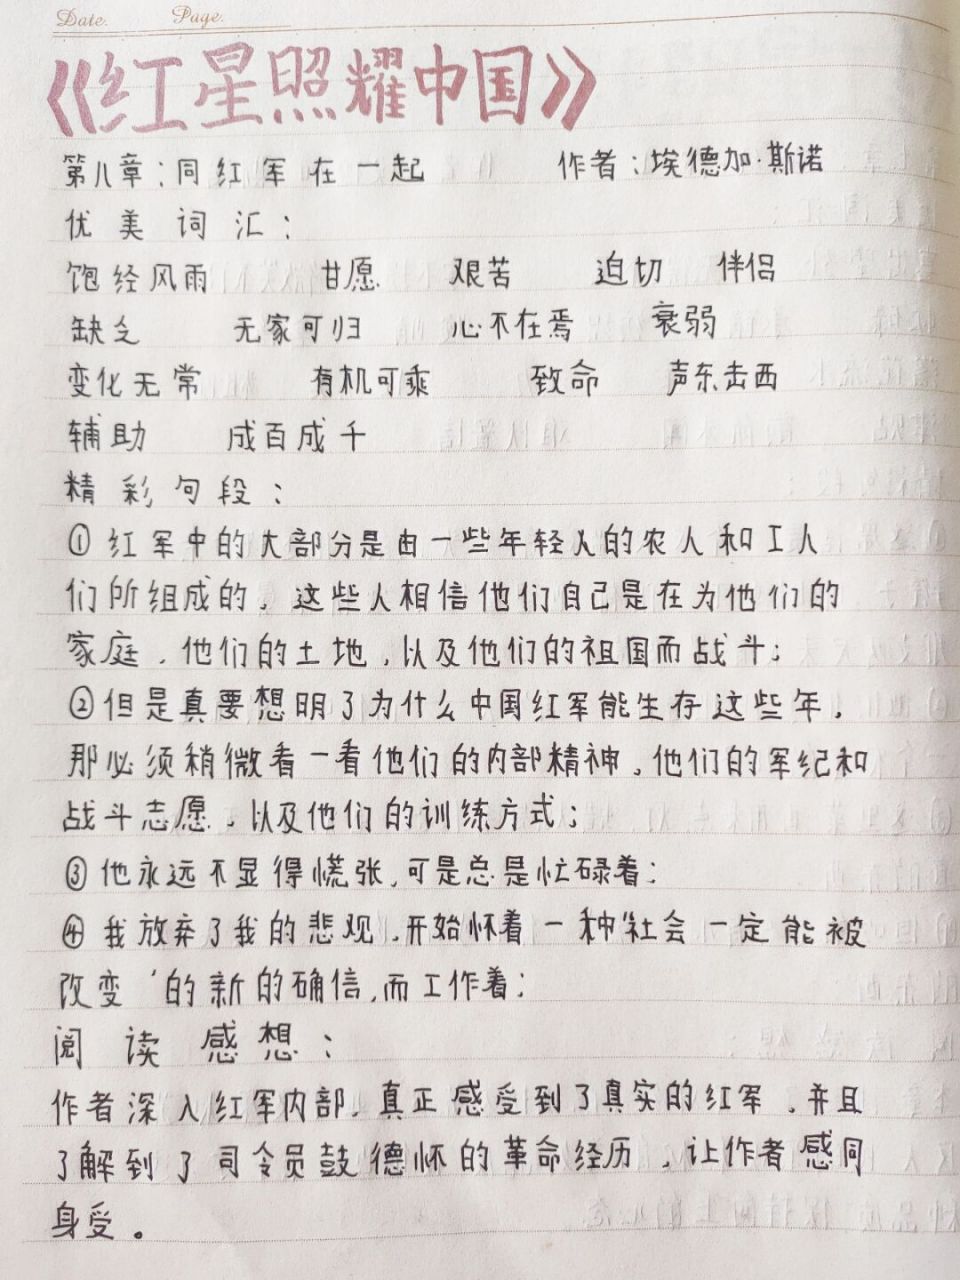 Date. Page.
《红星照耀中国》
第八章:同红军在一起 作者:埃德加·斯诺
优美词汇:
饱经风雨 甘愿 艰苦 迫切 伴侣
缺乏 无家可归 心不在焉 衰弱
变化无常 有机可乘 致命 声东击西
辅助 成百成千
精彩句段:
①红军中的大部分是由一些年轻人的农人和工人
们所组成的。这些人相信他们自己是在为他们的
家庭,他们的土地,以及他们的祖国而战斗;
②但是真要想明了为什么中国红军能生存这些年,
那必须稍微看一看他们的内部精神,他们的军纪和
战斗志愿,以及他们的训练方式;
③他永远不显得慌张,可是总是忙碌着;
④我放弃了我的悲观,开始怀着一种"社会一定能被
改变'的新的确信,而工作着;
阅读感想:
作者深入红军内部,真正感受到了真实的红军,并且
了解到了司令员鼓德怀的革命经历,让作者感同
身受。